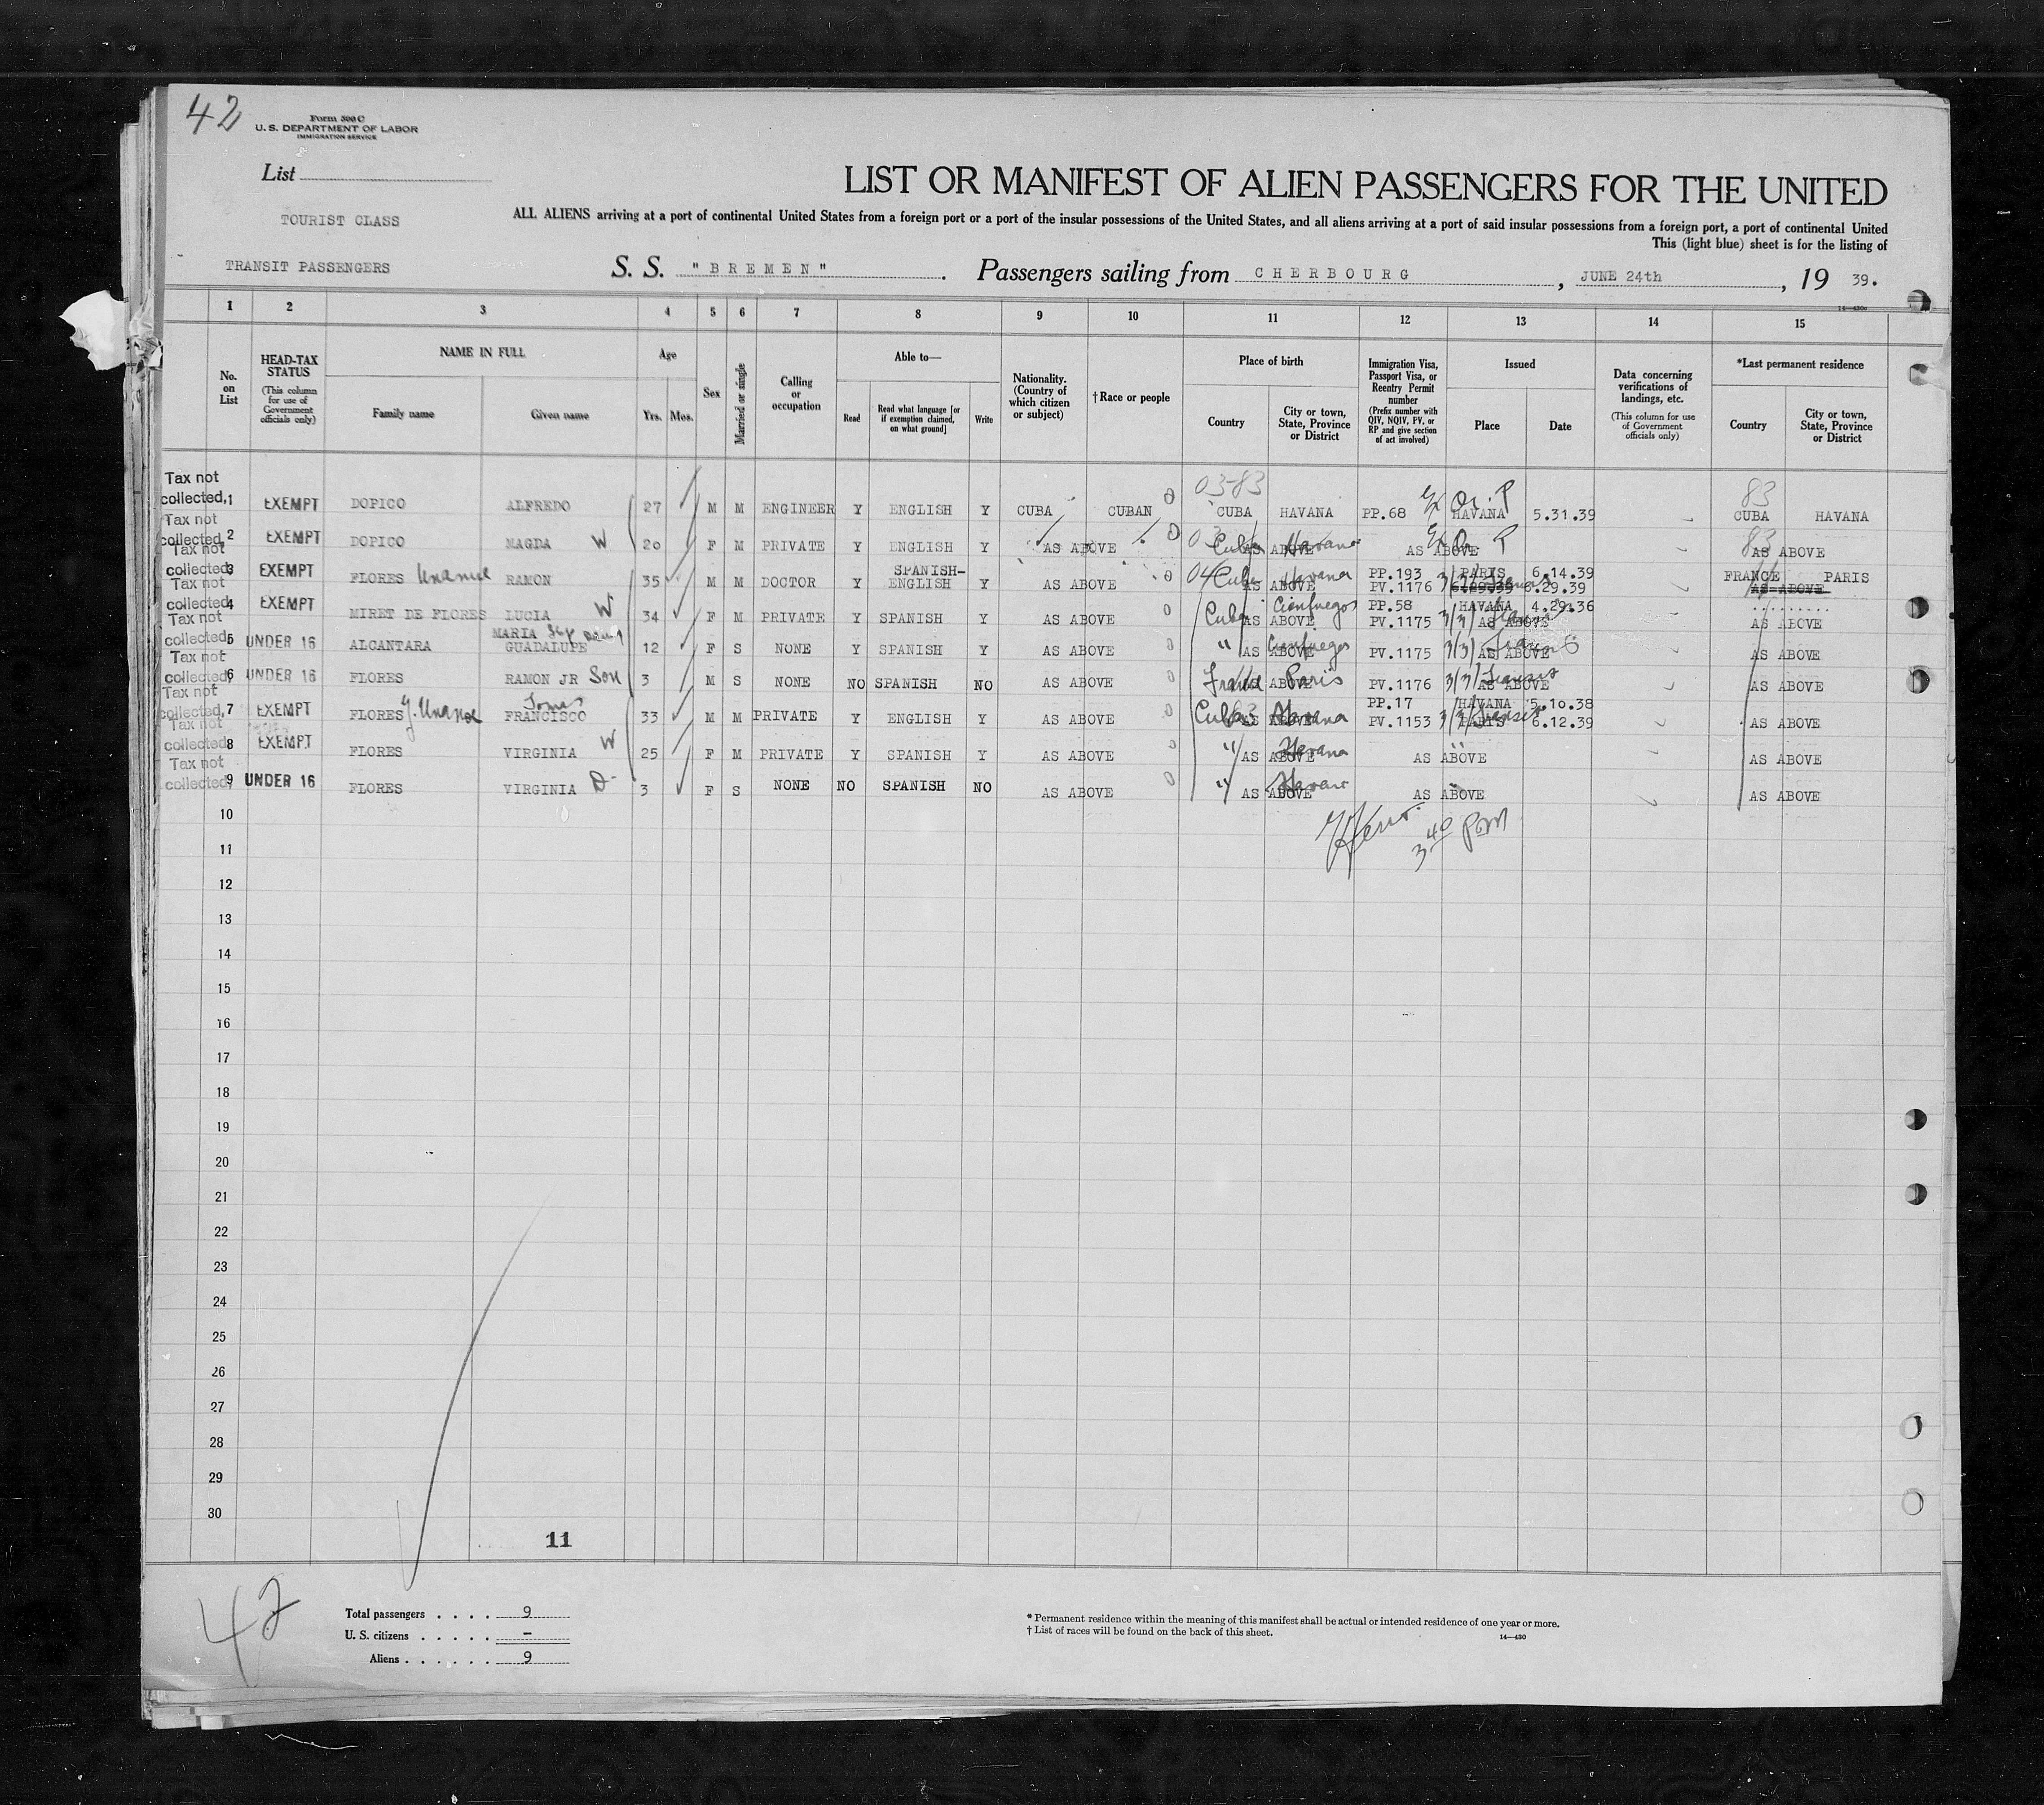 42
Form 500 C
U. S. DEPARTMENT OF LABOR
IMMIGRATION SERVICE
List
LIST OR MANIFEST OF ALIEN PASSENGERS FOR THE UNITED
TOURIST CLASS
ALL ALIENS arriving at a port of continental United States from a foreign port or a port of the insular possessions of the United States, and all aliens arriving at a port of said insular possessions from a foreign port, a port of continental United
This (light blue) sheet is for the listing of
TRANSIT PASSENGERS
S. S. "BREMEN". Passengers sailing from CHERBOURG, JUNE 24th, 19 39.
1 2 3 4 5 6 7 8 9 10 11 12 13 14 15
No. on List
HEAD-TAX STATUS (This column for use of Government officials only)
NAME IN FULL
Family name
Given name
Age
Yrs. Mos.
Sex
Married or single
Calling or occupation
Able to—
Read
Read what language [or if exemption claimed, on what ground]
Write
Nationality. (Country of which citizen or subject)
†Race or people
Place of birth
Country
City or town, State, Province or District
Immigration Visa, Passport Visa, or Reentry Permit number (Prefix number with QIV, NQIV, PV, or RP and give section of act involved)
Issued
Place
Date
Data concerning verifications of landings, etc. (This column for use of Government officials only)
*Last permanent residence
Country
City or town, State, Province or District
03-83 83
Tax not collected, 1 EXEMPT DOPICO ALFREDO 27 M M ENGINEER Y ENGLISH Y CUBA CUBAN CUBA HAVANA PP.68 HAVANA 5.31.39 CUBA HAVANA
Tax not collected, 2 EXEMPT DOPICO MAGDA W 20 F M PRIVATE Y ENGLISH Y AS ABOVE Cuba AS ABOVE Havana AS ABOVE 83 AS ABOVE
Tax not collected, 3 EXEMPT FLORES Unanue RAMON 35 M M DOCTOR Y SPANISH-ENGLISH Y AS ABOVE Cuba AS ABOVE Havana PP.193 PARIS 6.14.39 PV.1176 6.29.39 6.29.39 FRANCE PARIS AS ABOVE
Tax not collected, 4 EXEMPT MIRET DE FLORES LUCIA W 34 F M PRIVATE Y SPANISH Y AS ABOVE Cuba AS ABOVE Cienfuegos PP.58 HAVANA 4.29.36 PV.1175 3/3/ AS ABOVE Transit AS ABOVE
Tax not collected, 5 UNDER 16 ALCANTARA MARIA GUADALUPE 12 F S NONE Y SPANISH Y AS ABOVE " AS ABOVE Cienfuegos PV.1175 3/3/ AS ABOVE Transit AS ABOVE
Tax not collected, 6 UNDER 16 FLORES RAMON JR Son 3 M S NONE NO SPANISH NO AS ABOVE France AS ABOVE Paris PV.1176 3/3/ AS ABOVE Transit AS ABOVE
Tax not collected, 7 EXEMPT FLORES Y. Unanue Tomas FRANCISCO 33 M M PRIVATE Y ENGLISH Y AS ABOVE Cuba AS ABOVE Havana PP.17 HAVANA 5.10.38 PV.1153 3/3/ PARIS Transit 6.12.39 AS ABOVE
Tax not collected, 8 EXEMPT FLORES VIRGINIA W 25 F M PRIVATE Y SPANISH Y AS ABOVE " AS ABOVE Havana AS ABOVE " AS ABOVE
Tax not collected, 9 UNDER 16 FLORES VIRGINIA D 3 F S NONE NO SPANISH NO AS ABOVE " AS ABOVE Havana AS ABOVE " AS ABOVE
10
3 40 PM
11
12
13
14
15
16
17
18
19
20
21
22
23
24
25
26
27
28
29
30
11
42
Total passengers . . . . 9
U. S. citizens . . . . . –
Aliens . . . . . . 9
* Permanent residence within the meaning of this manifest shall be actual or intended residence of one year or more.
† List of races will be found on the back of this sheet.
14—430